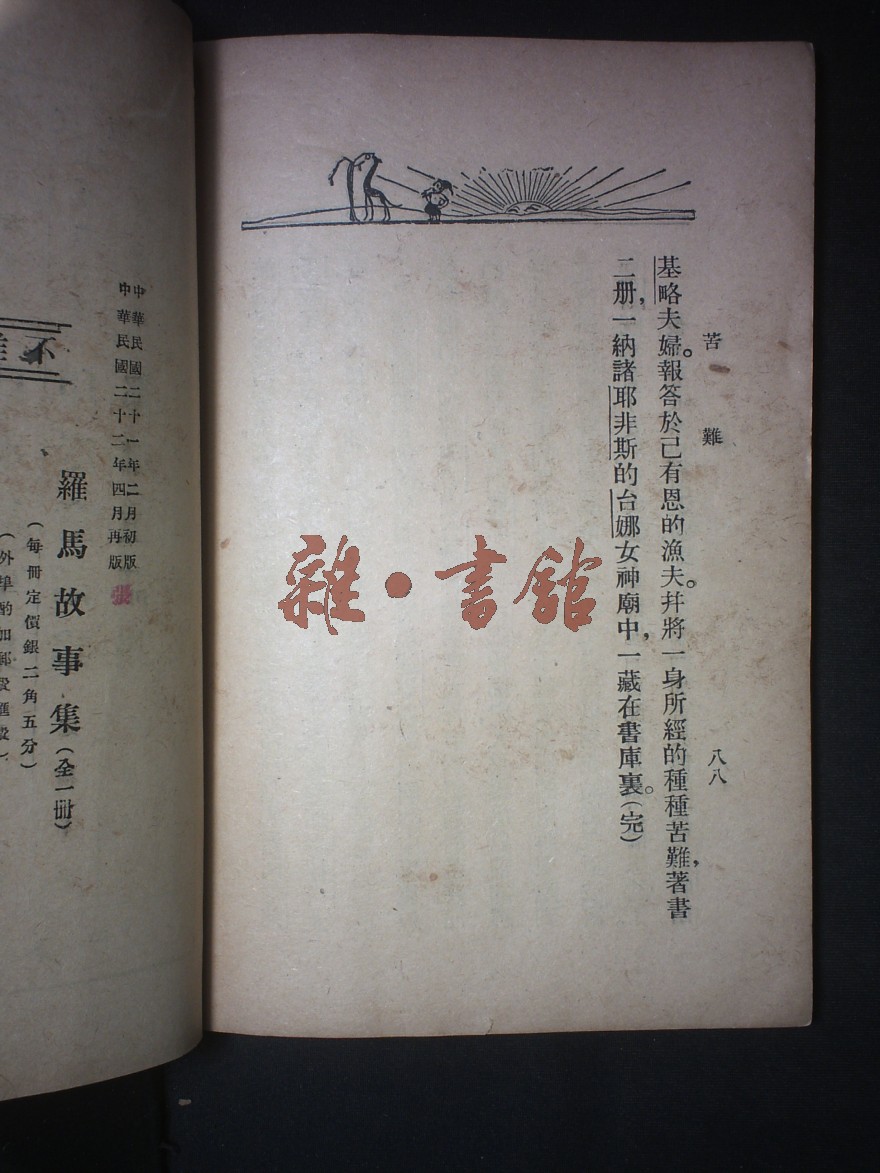 苦難
八八
基略夫婦。報答於己有恩的漁夫。幷將一身所經的種種苦難，著書
二册，一納諸耶非斯的台娜女神廟中，一藏在書庫裏。（完）
雜·書館
中華民國二十一年二月初版
中華民國二十二年四月再版
張
羅馬故事集（全一冊）
（每冊定價銀二角五分）
（外埠酌加郵費匯費）
不